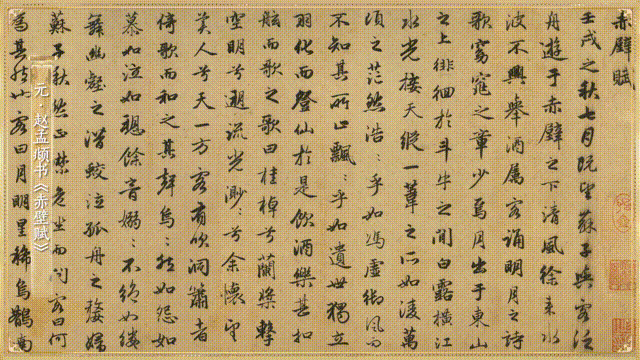 赤壁賦
壬戌之秋七月既望蘇子與客泛
舟遊于赤壁之下清風徐來水
波不興舉酒屬客誦明月之詩
歌窈窕之章少焉月出于東山
之上徘徊於斗牛之間白露橫江
水光接天縱一葦之所如淩萬
頃之茫然浩〻乎如馮虛御風而
不知其所止飄〻乎如遺世獨立
羽化而登仙於是飲酒樂甚扣
舷而歌之歌曰桂棹兮蘭槳擊
空明兮遡流光渺〻兮余懷望
美人兮天一方客有吹洞簫者
倚歌而和之其聲烏〻然如怨如
慕如泣如訴餘音嫋〻不絕如縷
舞幽壑之潛蛟泣孤舟之嫠婦
蘇子愀然正襟危坐而問客曰何
為其然也客曰月明星稀烏鵲南
元·赵孟頫书《赤壁赋》